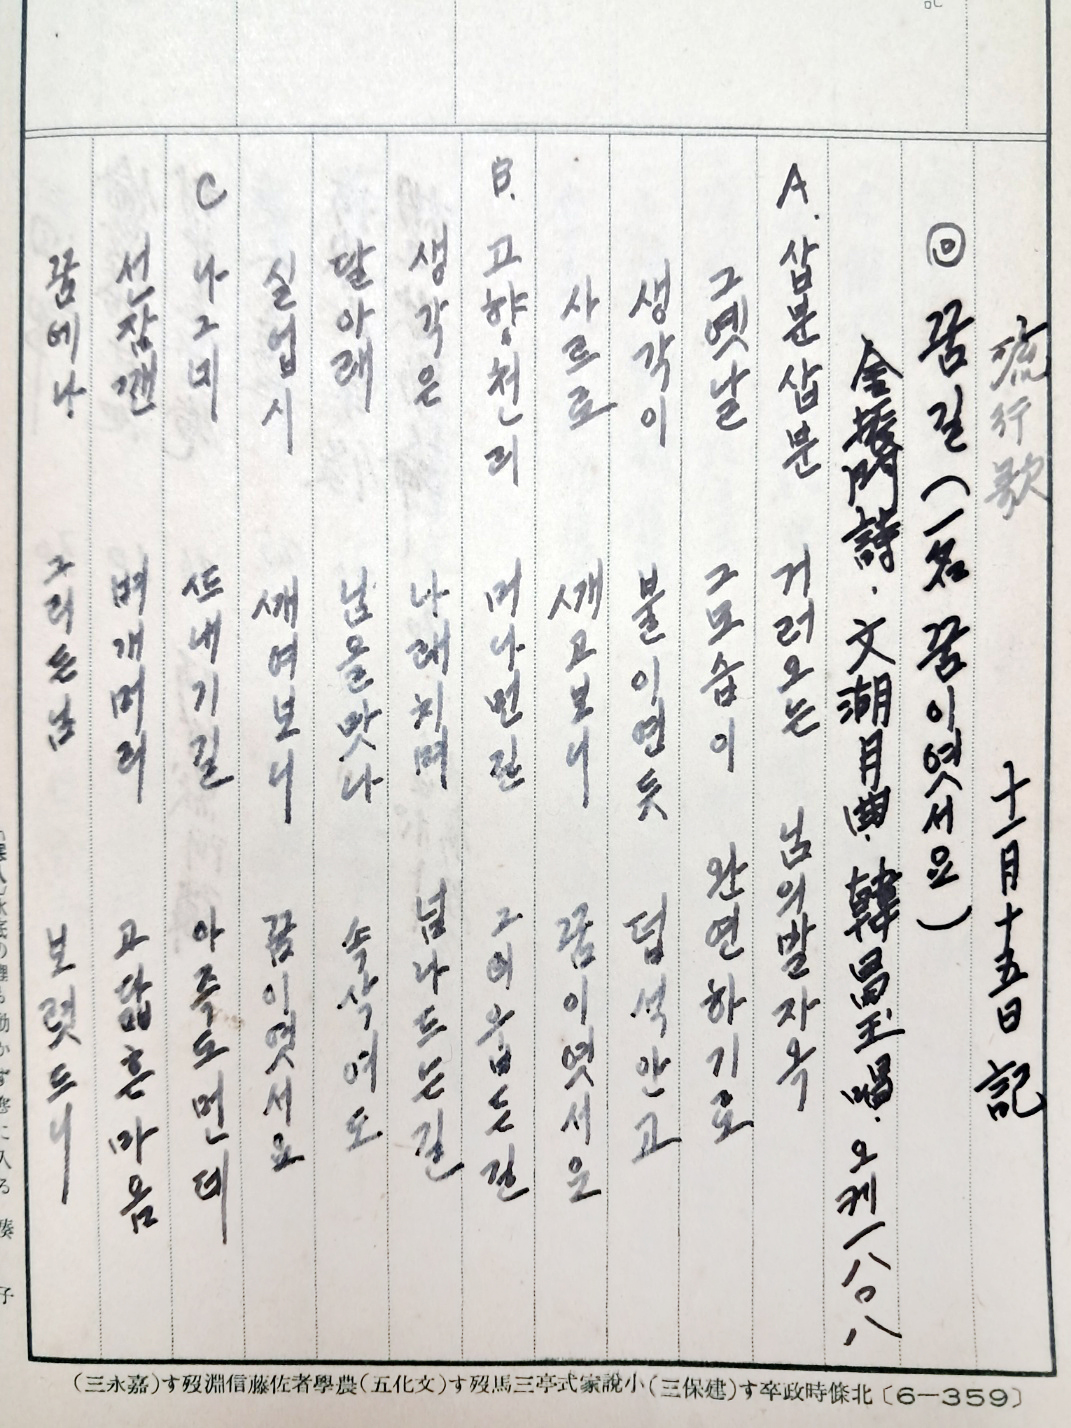 流行歌 十一月十五日 記
◎ 꿈길 (一名 꿈이엿서요)
金 門詩. 文湖月曲. 韓昌玉唱. 오케一八〇八
A. 삽분삽분 거러오는 님의발자욱
그옛날 그모습이 완연하기로
생각이 불이연듯 덥석안고
사르르 ᄭᅢ고보니 꿈이엿서요
B. 고향천리 머나먼길 그의웁든길
생각은 나래치며 넘나드든길
달아래 님을맛나 속삭여도
실업시 ᄭᅢ여보니 꿈이엿서요
C 나그네 ᄯᅳ내기길 아즉도먼데
선잠깬 벼개머리 고닯흔마음
꿈에나 그리든님 보렷드니
北條時政卒す(建保三)小說家式亭三馬歿す(文化五)農學者佐藤信淵歿す(嘉永三)
〔6—359〕